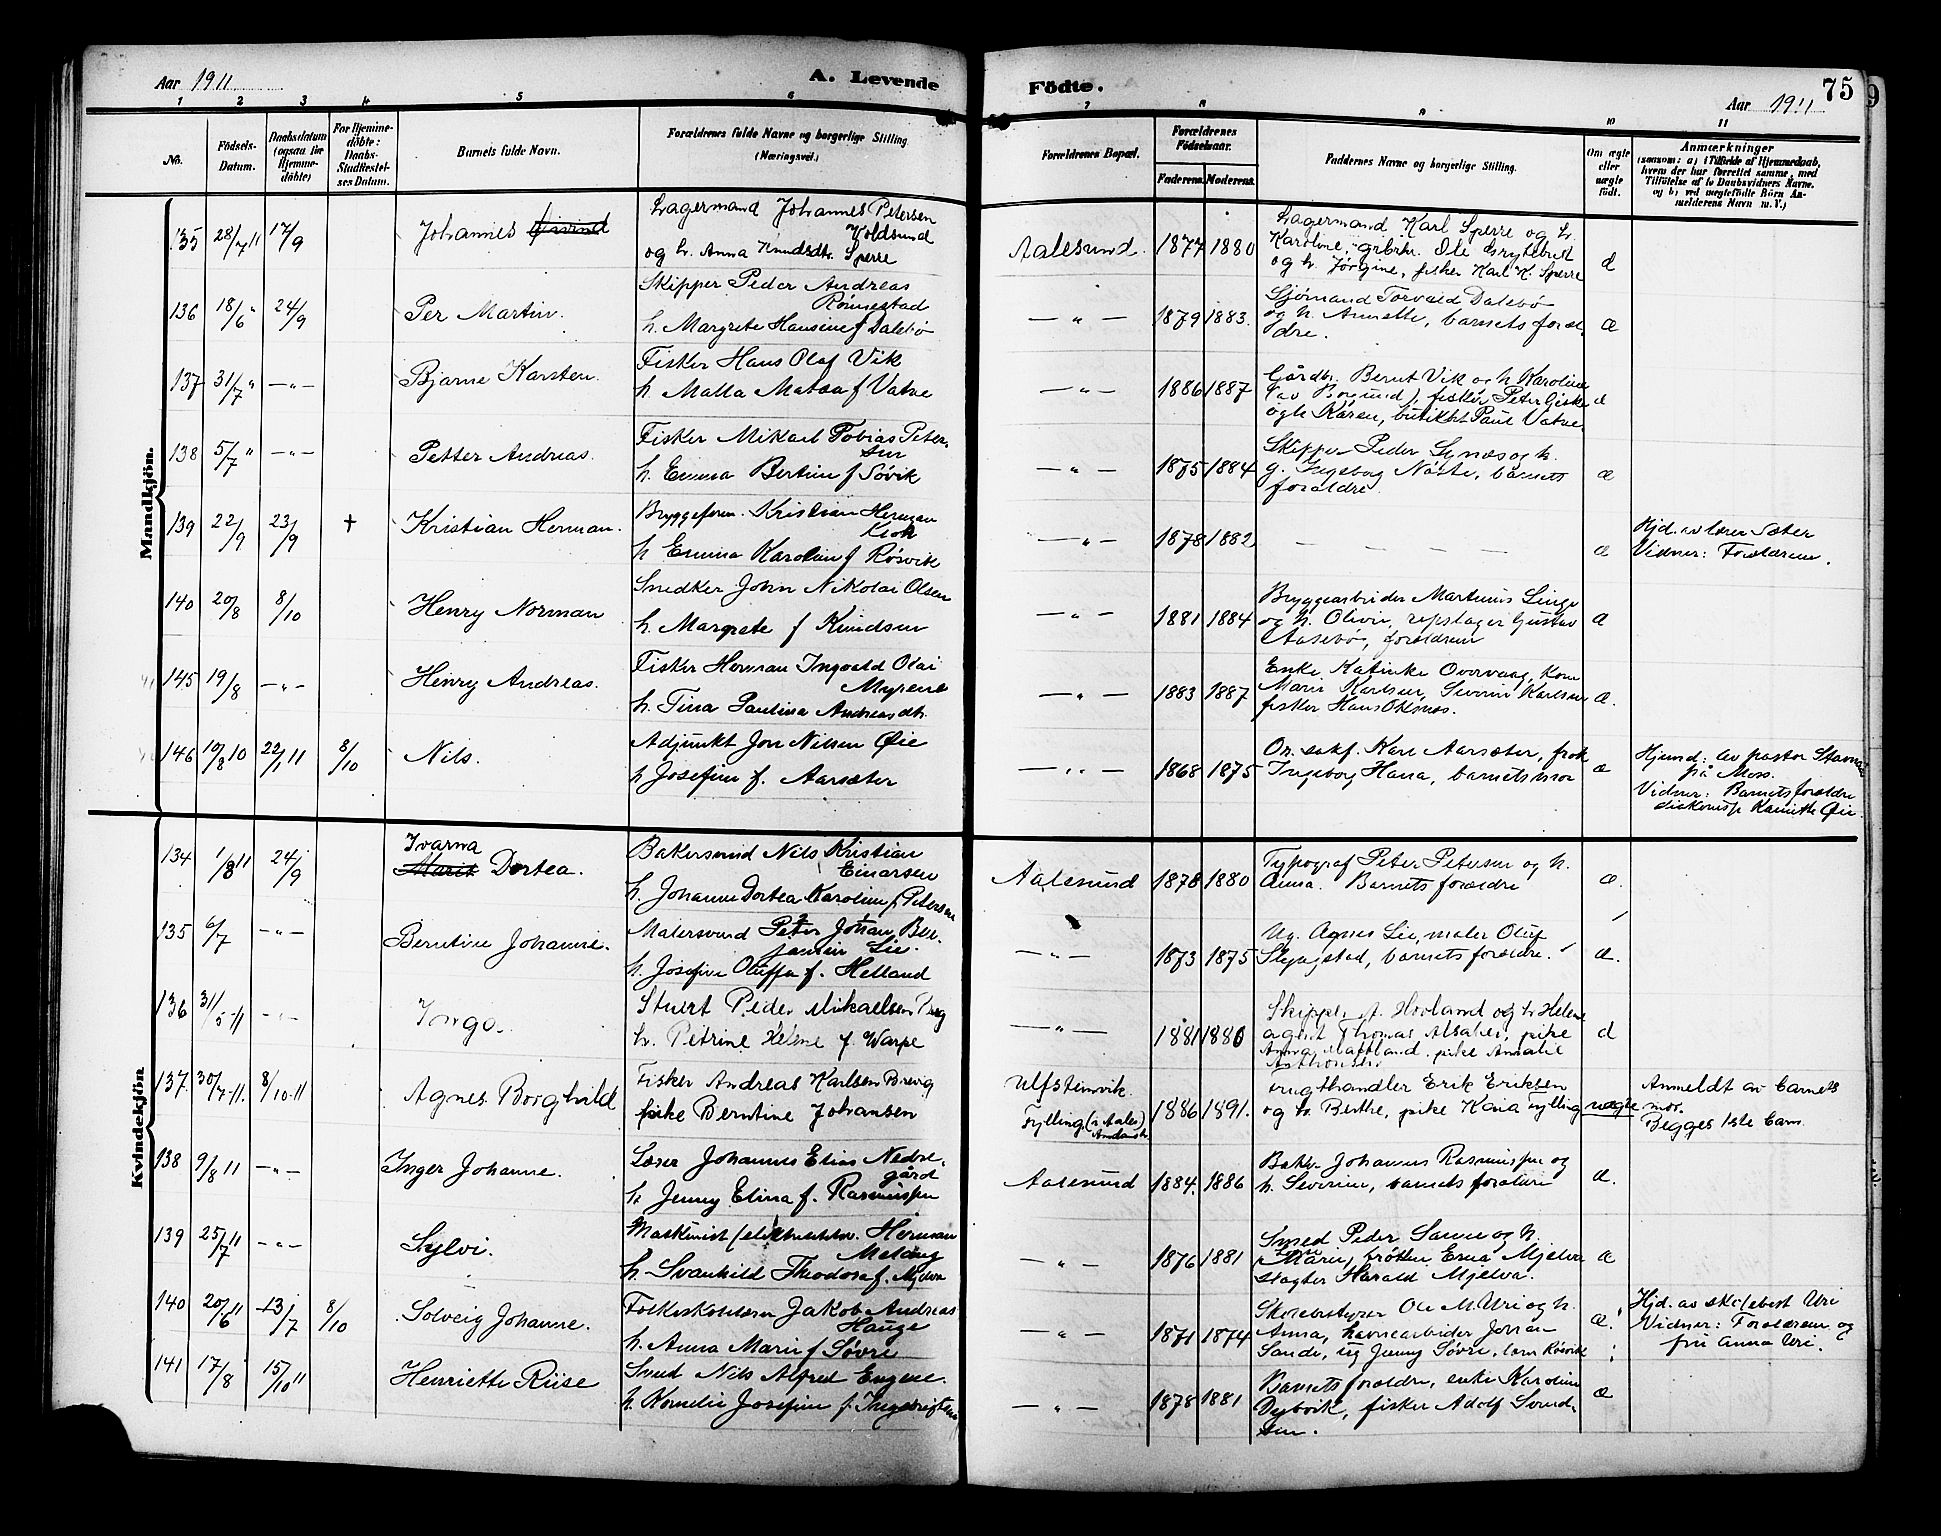 Aar 1911
A. Levende
Födte.
75
Aar 1911
1 2 3 4 5 6 7 8 9 10 11
No.
Födsels-
Datum.
Daabsdatum
(ogsaa for
Hjemme-
döbte)
For Hjemme-
döbte:
Daabs-
Stadfæstel-
ses Datum.
Barnets fulde Navn.
Forældrenes fulde Navne og borgerlige Stilling
(Næringsvei.)
Forældrenes Bopæl.
Forældrenes
Födselsaar.
Faderens. Moderens.
Faddernes Navne og borgerlige Stilling.
Om ægte
eller
uægte
født.
Anmærkninger
(saasom: a) i Tilfælde af Hjemmedaab,
hvem der har forrettet samme, med
Tilföielse af to Daabsvidners Navne.
og b) ved uægtefödte Börn An-
melderens Navn m. V.)
Mandkjön.
135 28/7 11 17/9 Johannes
Lagermand Johannes Petersen
Koldsund
og h. Anna Knudsdtr. Sperre
Aalesund. 1877 1880
Lagermand Karl Sperre og h.
Karoline, Ole Grytebust
og h. Jørgine, fisker Karl K. Sperre
136 18/6 " 24/9 Per Martin.
Skipper Peder Andreas
Rønnestad
h. Margrete Hansine f Dalebø
— " — 1879 1883.
Sjømand Torvald Dalebø
og h. Annette, barnets foræl
dre. æ
137 31/7 " — " — Bjarne Karsten.
Fisker Hans Olaf Vik
h. Malla Matea f Vatne
— " — 1886 1887
Gårdbr. Bernt Vik og h Karoline
(av Borgund), fisker Peter Giske
og h Karen, Paul Vatne
138 5/7 " — " — Petter Andreas.
Fisker Mikael Tobias Peter-
sen
h. Emma Bertine f Søvik
— " — 1875 1884
Skipper Peder Synes og h.
g. Ingeborg Nørte, barnets
forældre. æ
139 22/9 23/9 † Kristian Herman.
Bryggeform. Kristian Herman
h Emma Karoline f Røsvik
— " — 1878 1882
— — — — æ
Hjd. av lærer Sæter
Vidner: Forældrene.
140 20/8 8/10 Henry Norman
Snedker John Nikolai Olsen
h. Margrete f Knudsen
— " — 1881 1884
Bryggearbeider Martinus Linge
og h. Olivie, repslager Gustav
Aasebø, forældrene æ
145 19/8 — " — Henry Andreas.
Fisker Herman Ingvald Olai
Myrene
h. Tina Paulina Andreasdtr.
— " — 1883 1887
Enke Katinke Overvaag, Kone
Marie Karlsen, Severin Karlsen
fisker Hans Oksnes. æ.
146 10/8 10 22/1 11 8/10 Nils.
Adjunkt Jon Nilsen Øie
h Josefine f. Aarsæter
— " — 1868 1875
Or. sakf. Karl Aarsæter, frøk
Ingeborg Hana, barnets mor æ
Hjemd: av pastor
på Moss.
Vidner: Barnets forældre
Øie.
Kvindekjön
134 1/8 11 24/9 Ivarna
Marit Dortea.
Bakersvend Nils Kristian
Einarsen
h. Johanne Dortea Karoline f Petersen
Aalesund 1878 1880
Typograf Peter Petersen og h.
Anna. Barnets forældre æ.
135 6/7 — " — Berntine Johanne.
Malersvend Peter Johan Ben-
jamin Lie
h. Josefine Oluffa f. Helland
— " — 1873 1875
Ug. Agnes Lie, maler Oluf
barnets forældre. æ.
136 31/5 11 — " — Inga.
Stuert Peder Mikaelsen
h. Petrine Helene f Warpe
— " — 1881 1880
Skipper A. Hovland og h Helene
agent Thomas pike
Anna pike Amalie
137. 30/7 11. 8/10 11 Agnes Borghild
Fisker Andreas Karlsen Brevig
pike Berntine Johansen
Ulfsteinvik.
Fylling, 1886 1891.
frugthandler Erik Eriksen
og h. Berthe, pike Kaia Fylling uægte
Anmeldt av barnets
mor.
Begges 1ste barn
138 9/8 11 — " — Inger Johanne.
Læser Johannes Elias Nedre-
gård
h Jenny Elina f. Rasmussen
Aalesund 1884. 1886
Baker Johannes Rasmussen og
h. Severine, barnets forældre æ.
139 25/7 11 — " — Sylvi.
Maskinist Herman
h. Svanhild Theodora f. Mjelva
— " — 1876 1881
Smed Peder Sanne og h.
Marie, frøken Erna Mjelva
slagter Harald Mjelva. æ
140 20/6 11 13/7 8/10 Solveig Johanne.
Folkeskolelærer Jakob Andreas
Hauge
h. Anna Marie f Søvre
— " — 1871 1874
Skolebestyrer Ole M. Uri og h.
Anna, havnearbider
Sande, ug Jenny Søvre, æ.
Hjd. av skolebest Uri
Vidner: Forældrene og
fru Anna Uri.
141 17/8 15/10 11 Henriette Riise
Smed Nils Alfred Engene.
h. Kornelie Josefine f Ingebrigtsen
— " — 1878 1881
Barnets forældre, enke Karoline
Dybvik, fisker Adolf Svend-
sen. æ